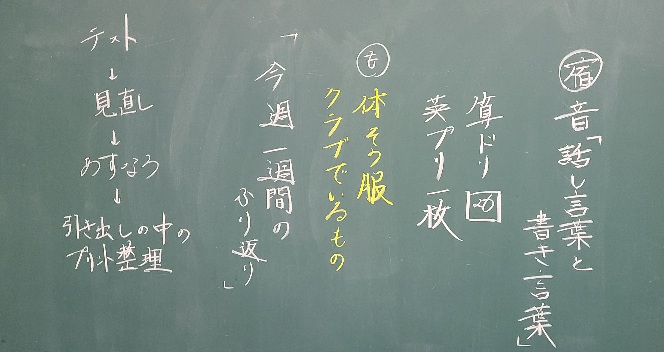 宿 音「話し言葉と
書き言葉」
算ドリ
英プリ一枚
も 体そう服
クラブでいるもの
「今週一週間の
ふり返り」
テスト
↓
見直し
↓
あすなろ
↓
引き出しの中の
プリント整理